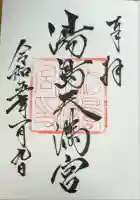 奉拝
湯島天満宮
令和六年一月九日